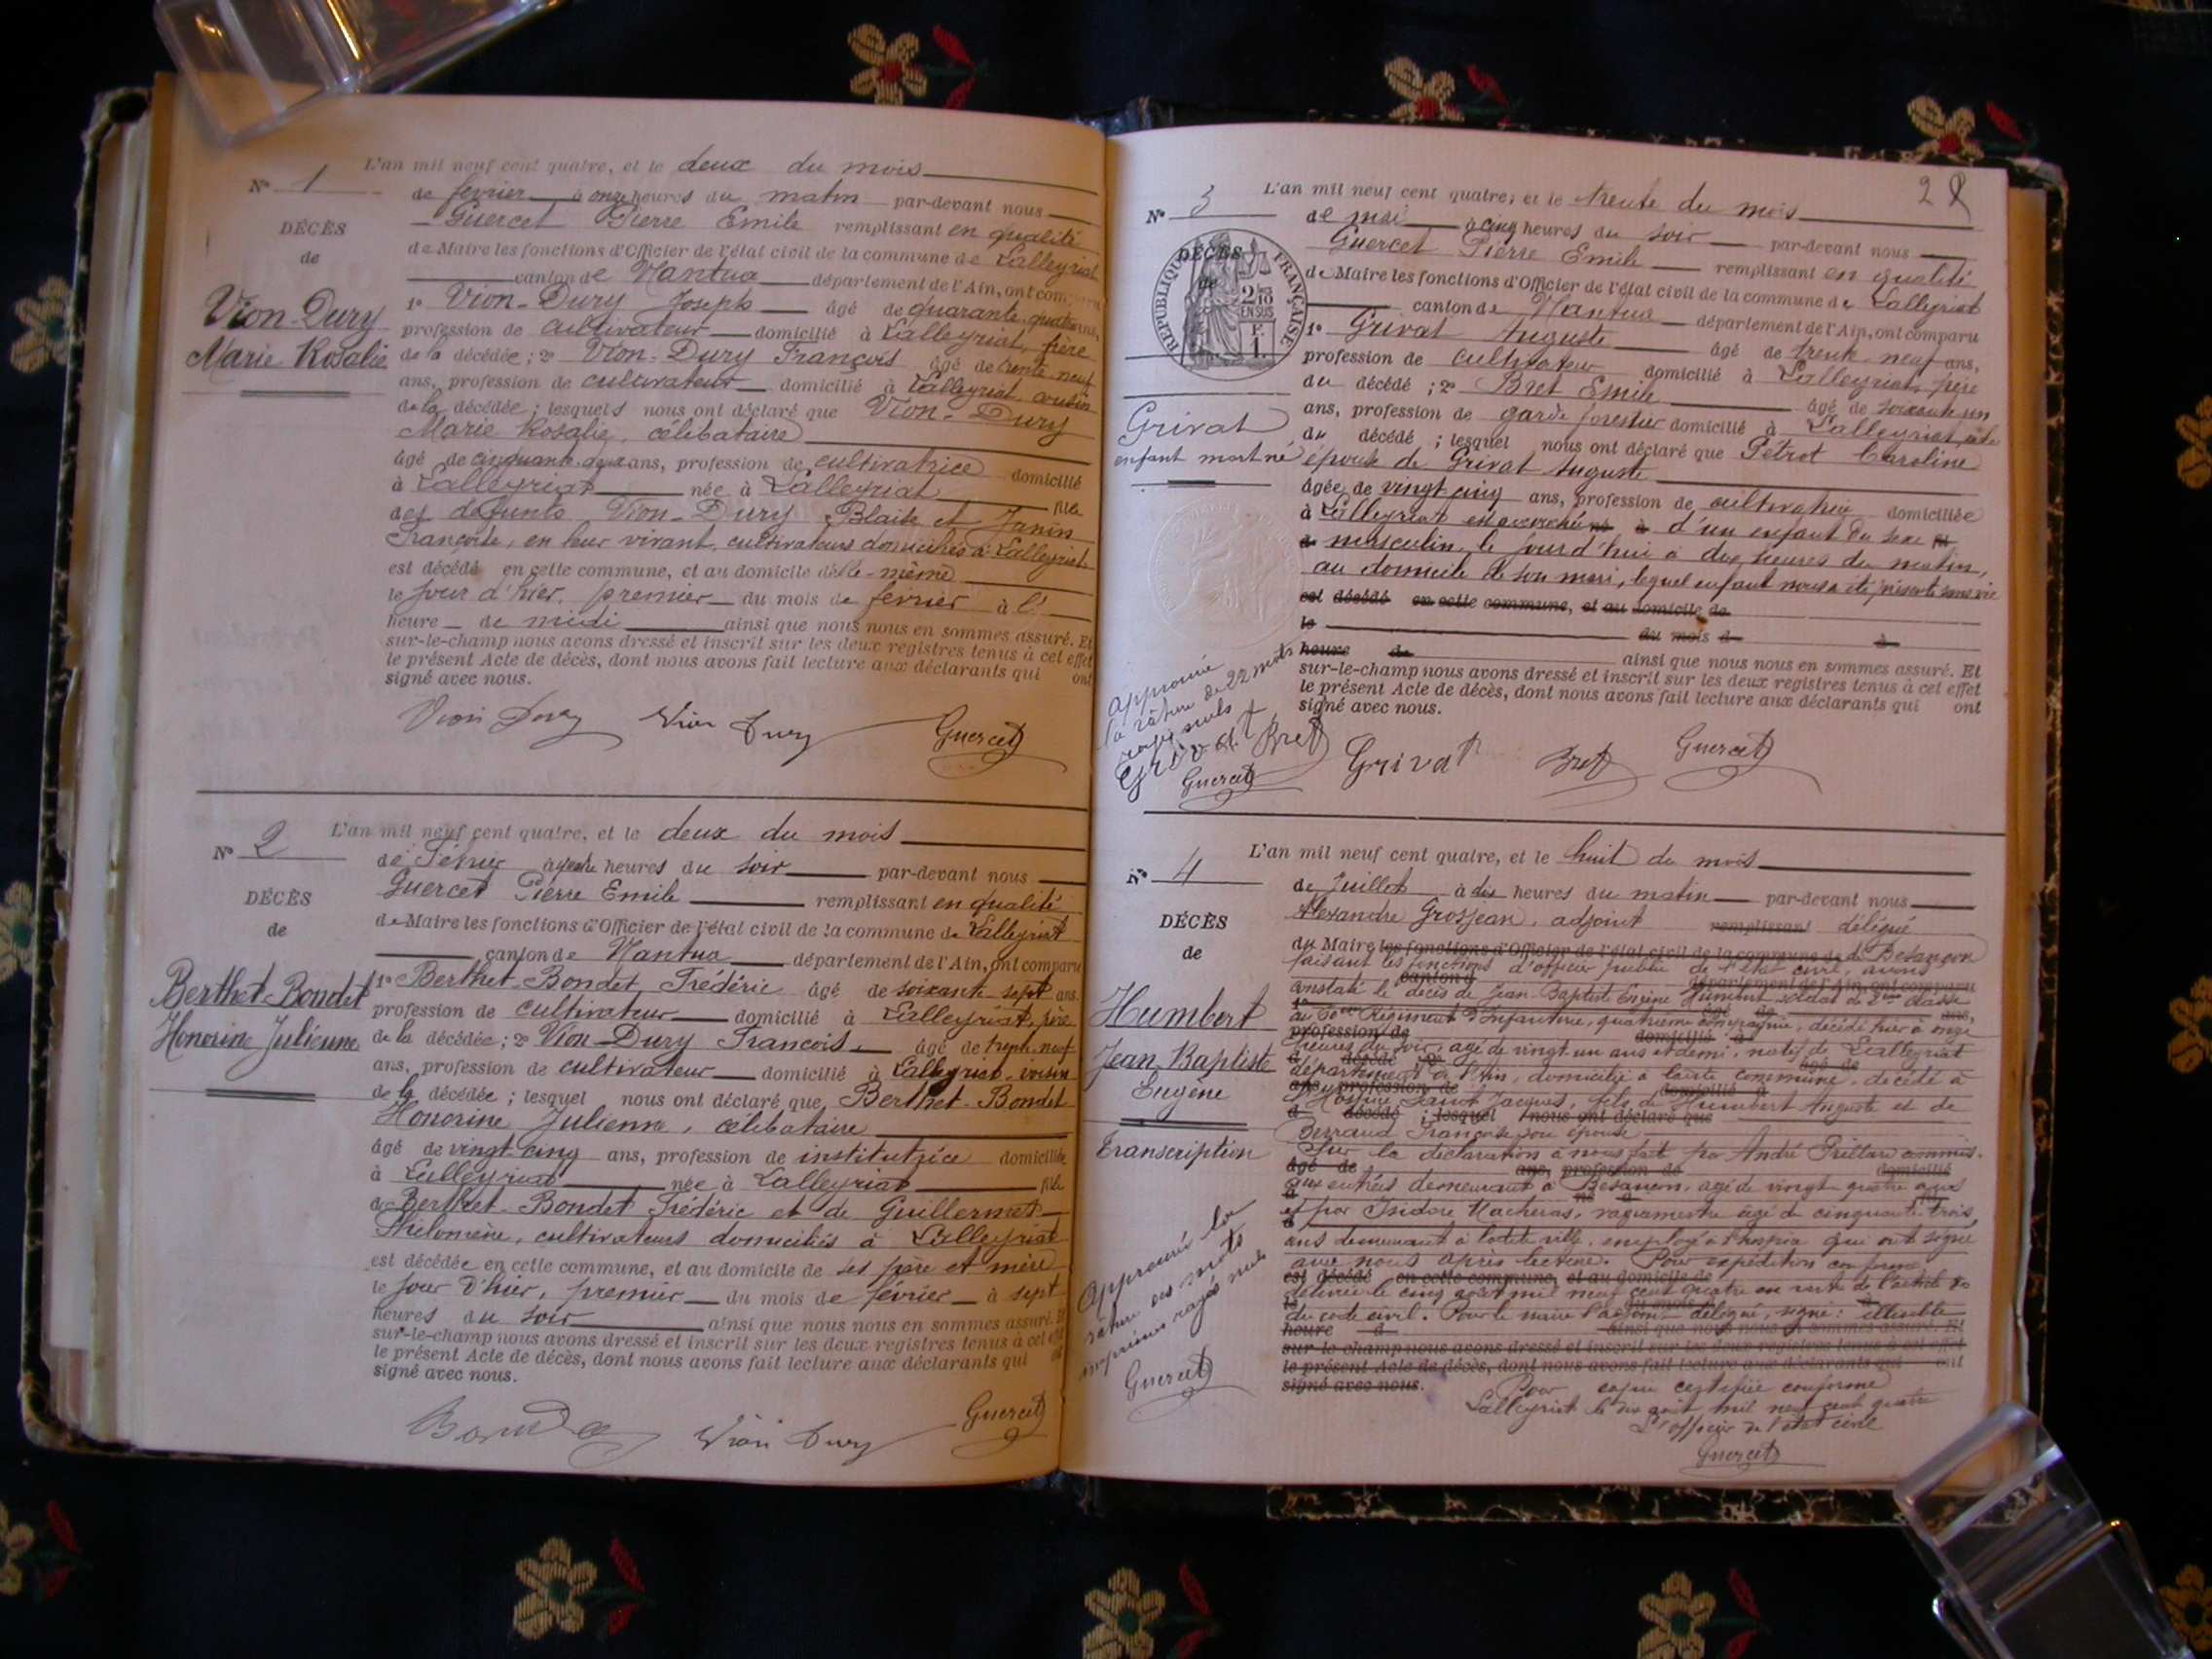 L'an mil neuf cent quatre, et le deux du mois
N° 1
de fevrier à onze heures du matin par-devant nous
Guercet Pierre Emile remplissant en qualité
DÉCÈS
de Maire les fonctions d'Officier de l'état civil de la commune de Lalleyriat
de
canton de Nantua département de l'Ain, ont comparu
1° Vion-Dury Joseph âgé de quarante-quatre ans,
Vion-Dury
profession de cultivateur domicilié à Lalleyriat, frère
Marie Rosalie
de la décédée; 2° Vion-Dury François âgé de trente-neuf
ans, profession de cultivateur domicilié à Lalleyriat, cousin
de la décédée; lesquels nous ont déclaré que Vion-Dury
Marie Rosalie, célibataire
âgé de cinquante-deux ans, profession de cultivatrice domicilié
à Lalleyriat née à Lalleyriat fille
des défunts Vion-Dury Blaise et Janin
Françoise, en leur vivant, cultivateurs domiciliés à Lalleyriat
est décédé en cette commune, et au domicile d'elle-même
le jour d'hier, premier du mois de fevrier à l'
heure de midi ainsi que nous nous en sommes assuré. Et
sur-le-champ nous avons dressé et inscrit sur les deux registres tenus à cet effet
le présent Acte de décès, dont nous avons fait lecture aux déclarants qui ont
signé avec nous.
Vion Dury Vion Dury Guercet
L'an mil neuf cent quatre, et le deux du mois
N° 2
de Février à quatre heures du soir par-devant nous
Guercet Pierre Emile remplissant en qualité
DÉCÈS
de Maire les fonctions d'Officier de l'état civil de la commune de Lalleyriat
de
canton de Nantua département de l'Ain, ont comparu
Berthet-Bondet
1° Berthet-Bondet Frédéric âgé de soixante-sept ans.
profession de cultivateur domicilié à Lalleyriat, père
Honorine Julienne
de la décédée; 2° Vion-Dury François âgé de trente-neuf
ans, profession de cultivateur domicilié à Lalleyriat, voisin
de la décédée; lesquel nous ont déclaré que Berthet-Bondet
Honorine Julienne, célibataire
âgé de vingt-cinq ans, profession de institutrice domiciliée
à Lalleyriat née à Lalleyriat fille
de Berthet-Bondet Frédéric et de Guillermet
Philomène, cultivateurs domiciliés à Lalleyriat
est décédée en cette commune, et au domicile de ses père et mère
le jour d'hier, premier du mois de février à sept
heures du soir ainsi que nous nous en sommes assuré. Et
sur-le-champ nous avons dressé et inscrit sur les deux registres tenus à cet effet
le présent Acte de décès, dont nous avons fait lecture aux déclarants qui ont
signé avec nous.
Vion Dury Guercet
28
L'an mil neuf cent quatre, et le trente du mois
N° 3
de mai à cinq heures du soir par-devant nous
Guercet Pierre Emile remplissant en qualité
DÉCÈS
de
RÉPUBLIQUE FRANÇAISE
2/10 EN SUS
F. 1.
de Maire les fonctions d'Officier de l'état civil de la commune de Lalleyriat
canton de Nantua département de l'Ain, ont comparu
1° Grivat Auguste âgé de trente neuf ans,
profession de cultivateur domicilié à Lalleyriat, père
du décédé; 2° Bret Emile âgé de soixante un
ans, profession de garde forestier domicilié à Lalleyriat
Grivat
enfant mort né
du décédé; lesquel nous ont déclaré que Pétrot Caroline
épouse de Grivat Auguste
âgée de vingt cinq ans, profession de cultivatrice domiciliée
à Lalleyriat est accouchée né à d'un enfant du sexe
masculin, le jour d'hui à dix heures du matin,
au domicile de son mari, lequel enfant nous a été présenté sans vie
est décédé en cette commune, et au domicile de
le du mois d à
heure de ainsi que nous nous en sommes assuré. Et
sur-le-champ nous avons dressé et inscrit sur les deux registres tenus à cet effet
le présent Acte de décès, dont nous avons fait lecture aux déclarants qui ont
signé avec nous.
Approuvé
la râture de 22 mots
rayés nuls
Grivat Bret
Guercet
Grivat Bret Guercet
L'an mil neuf cent quatre, et le huit du mois
N° 4
de Juillet à dix heures du matin par-devant nous
Alexandre Grosjean, adjoint remplissant délégué
DÉCÈS
de
du Maire les fonctions d'Officier de l'état civil de la commune de de Besançon
faisant les fonctions d'officier public de l'état civil, avons
canton d département de l'Ain, ont comparu
constaté le décès de Jean-Baptiste Eugène Humbert soldat de 2me classe
Humbert
Jean Baptiste
Eugène
Transcription
au 60me Régiment d'Infanterie, quatrième compagnie, décédé hier à onze
profession de domicilié à
heures du soir, agé de vingt un ans et demi, natif de Lalleyriat
département de l'Ain, domicilié à ladite commune, décédé à
ans, profession de domicilié à
l'Hospice Saint Jacques, fils de Humbert Auguste et de
d décédé; lesquel nous ont déclaré que
Berraud Françoise son épouse
Sur la déclaration à nous fait par André Prillard commis.
âgé de ans, profession de domicilié
aux entrées demeurant à Besançon, agé de vingt quatre ans
et par Isidore Macheras, vaguemestre âgé de cinquante-trois
ans demeurant à ladite ville, employé à l'hospice qui ont signé
avec nous après lecture. Pour expédition conforme
est décédé en cette commune, et au domicile de
délivrée le cinq août mil neuf cent quatre en vertu de l'article 80
du code civil. Pour le maire l'adjoint délégué, signé: illisible
heure d ainsi que nous nous en sommes assuré. Et
sur-le-champ nous avons dressé et inscrit sur les deux registres tenus à cet effet
le présent Acte de décès, dont nous avons fait lecture aux déclarants qui ont
signé avec nous.
Approuvé la
râture des mots
imprimés rayés nuls
Guercet
Pour copie certifiée conforme
Lalleyriat le dix août mil neuf cent quatre
L'officier de l'état civil
Guercet